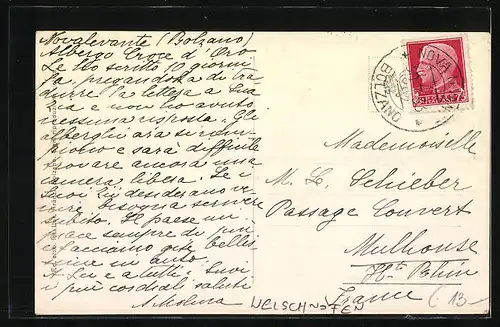 Novalevante (Bolzano)
Albergo Croce d'Oro
Le ho scritto 10 giorni
fa pregandola di tra
durre la lettera a Sua
e non ho avuto
nessuna risposta. Gli
alberghi ora si riem
piono e sarà difficile
trovare ancora una
camera libera. Se i
Suoi desiderano ve
nire bisogna scrivere
subito. Il paese mi
piace sempre di più
e facciamo gite bellis
sime in auto.
A Lei e a tutti i Suoi
i più cordiali saluti
A. Molura
NOVA
BOLZANO
Mademoiselle
M. L. Schieber
Passage Couvert
Mulhouse
Ht. Rhin
France
(13
WELSCHNOFEN